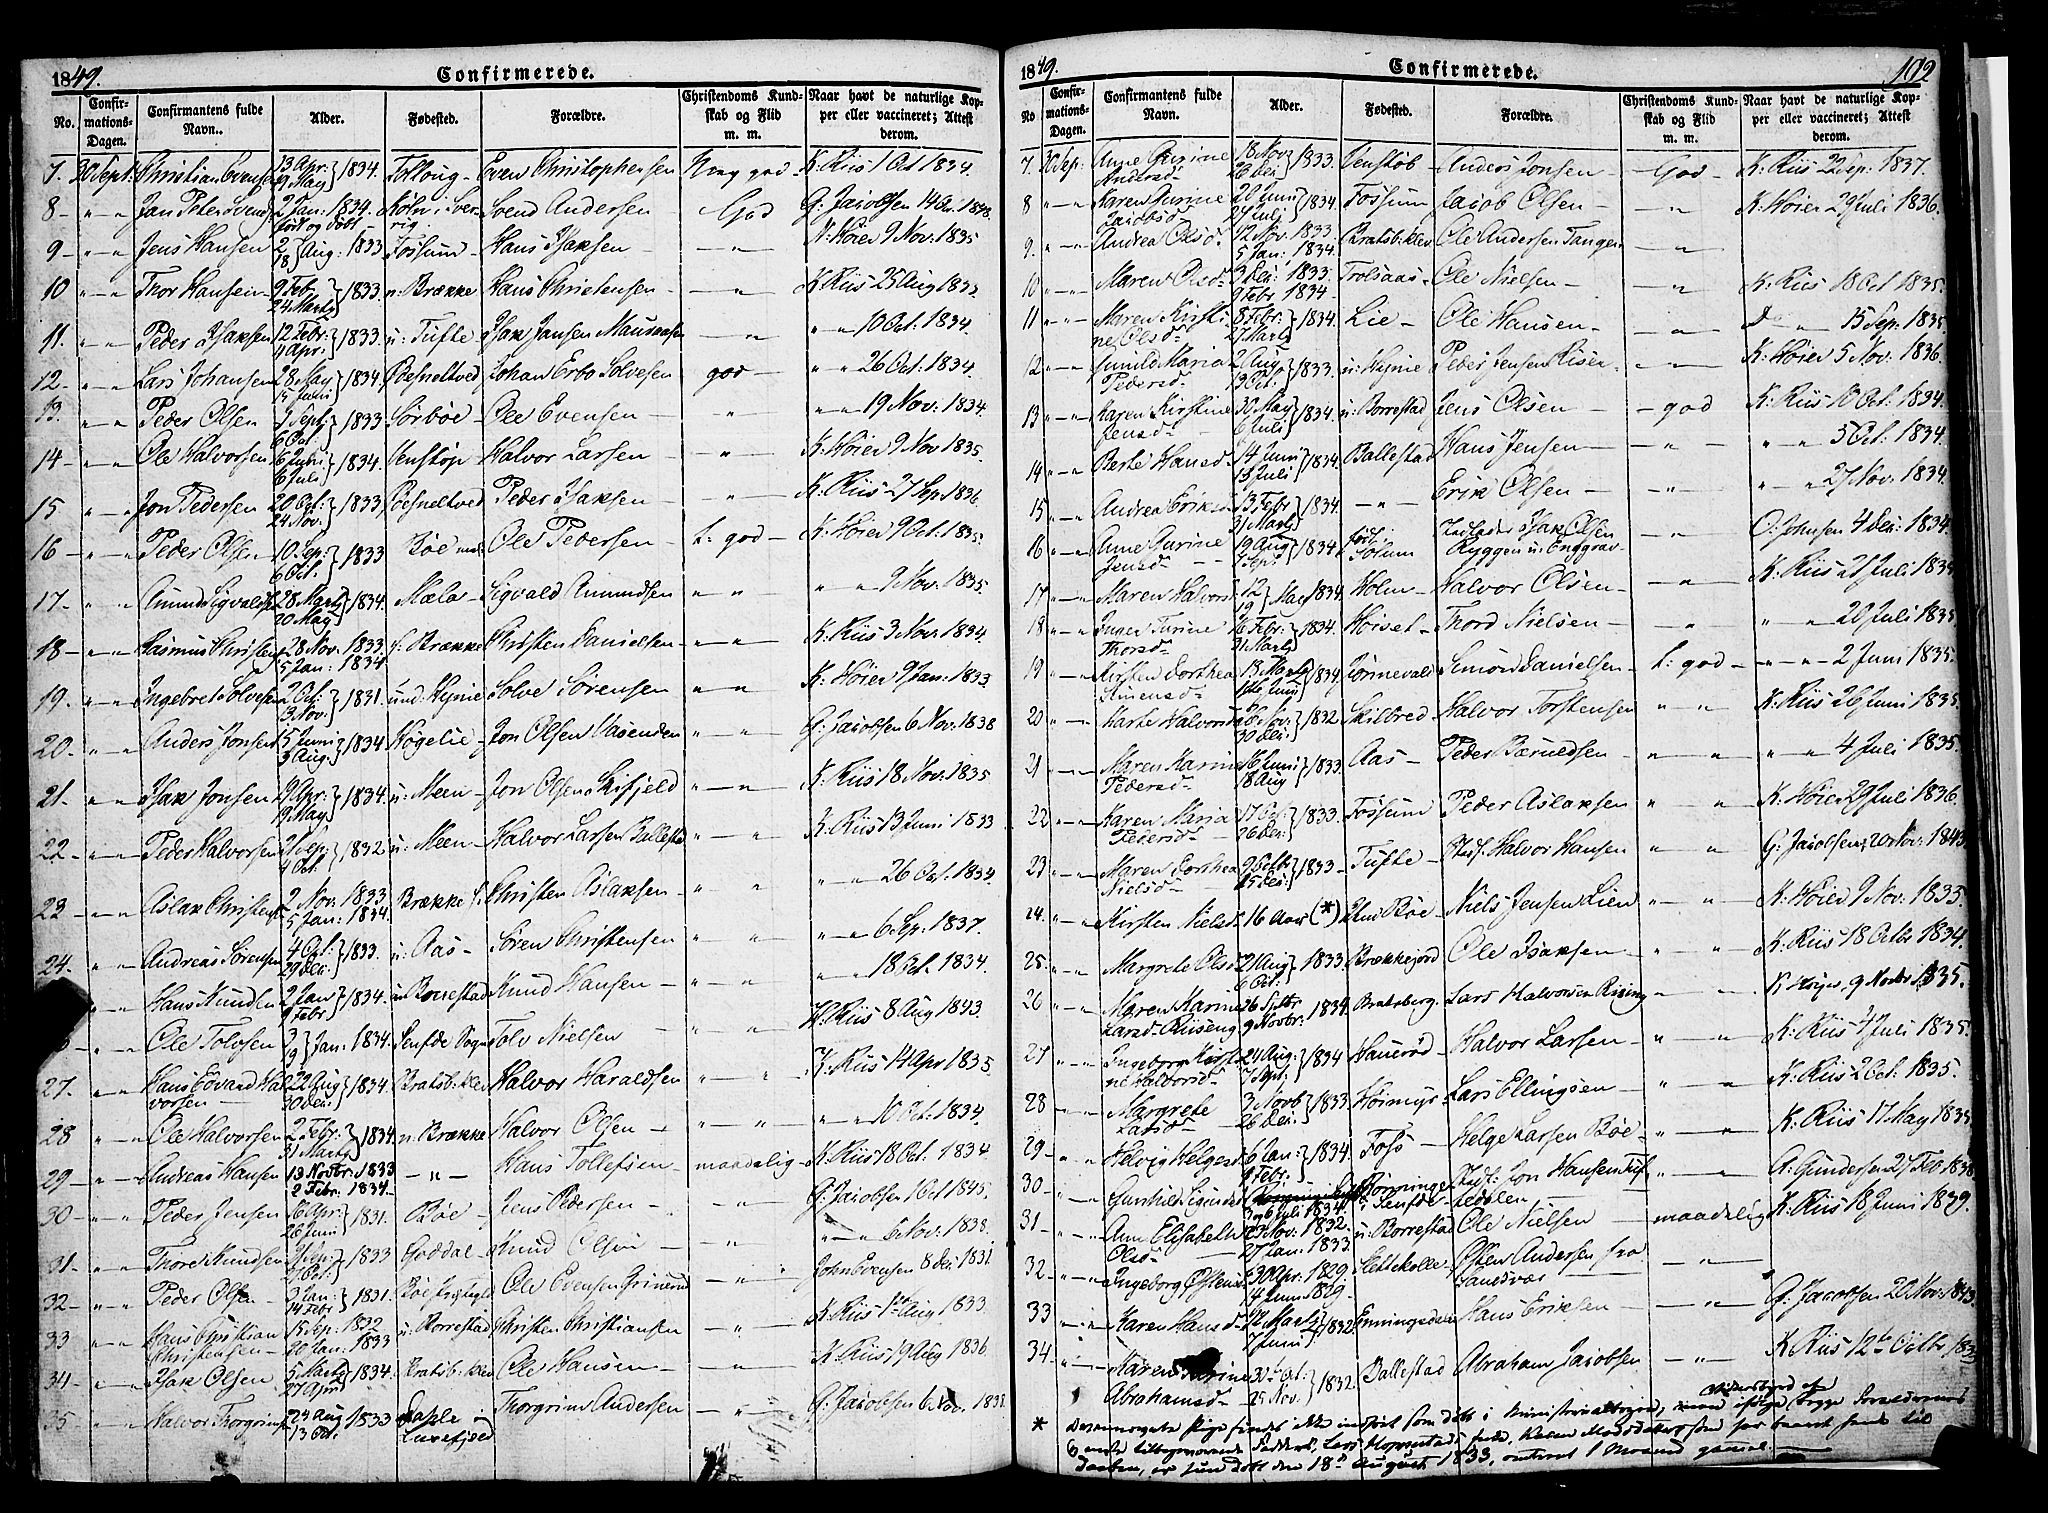 1849.
Confirmerede.
No.
Confir-
mations-
Dagen.
Confirmantens fulde
Navn..
Alder.
Fødested.
Forældre.
Christendoms Kund-
skab og Flid
m. m.
Naar havt de naturlige Kop-
per eller vaccineret; Attest
derom.
7. 30 Sept: Christian Evensen 13 Apr: 19 May } 1834. Even Christophersen Meg god K. Riis 1 Oct 1834.
8 - " - " Jan Peter Svends 2 Jan: 1834. født og døbt Köln i Sverrig Svend Andersen - God G. Jacobsen 14
9 - " - " Jens Hansen 2 18 } Aug: 1833 Fossum Hans Isaksen - " N. Høier 9 Nov: 1835
10 " - " Thor Hansen 9 Febr. 24 Martz } 1833. n. Brække Hans Christensen - " - K. Riis 25 Aug 1833.
11. " - " Peder Isaksen 12 Febr: 4 Apr: } 1833. u: Tufte Isak Jansen - " " - 10 Oct. 1834.
12 - " - " Lars Johansen 28 May 15 Juni } 1834. Bøsneltved Johan Erbo Solvesen god - " - 26 Oct: 1834.
13. " - " Peder Olsen 9 Sept: 6 Oct: } 1833 Sorbøe Ole Evensen " " - 19 Nov: 1834
14 - " - " Ole Halvorsen 16 Juni 6 Juli } 1834. Venstøp Halvor Larsen - " - K. Høier 9 Nov 1835.
15 " - " Jon Pedersen 20 Oct: 24 Nov: } 1833 Bøsneltved Peder Isaksen - " K. Riis 27 Sep 1836
16 - " - " Peder Olsen 10 Sep: 6 Oct. } 1833 Bøe Ole Pedersen - t: god - K. Høier 9 Oct. 1835.
17. " - " Amund Sigvaldsen 28 Martz 20 May } 1834. Mælar Sigvald Amundsen " " " - 9 Nov: 1835.
18 - " - " Rasmus Christens 28 Nov. 1833. 5 Jan: 1834 Brække Christen Danielsen - " - " K. Riis 3 Nov: 1834
19. " - " Ingebret Solvesen 2 Oct: 13 Nov: } 1831. und. Hynie Solve Sörensen " - " K. Høier 9 Jan: 1833.
20. " - " Anders Jonsen 15 Juni 3 Aug: } 1834 Høgelie Jon Olsen Vasenden " - " G. Jacobsen 6 Nov: 1838
21. " - " Isak Jonsen 19 Apr: 19 May } 1834. u: Meen Jon Olsen Skifjeld " - " K. Riis 18 Nov: 1835
22 - " - " Peder Halvorsen 21 Sep: 4 Oct: } 1832 u: Meen Halvor Larsen Ballestad " - " K. Riis 13 Juni 1833
23 " - " Aslak Christens 2 Nov. 1833. 5 Jan: 1834. Brække Christen Aslaksen " " " - 26 Oct. 1834.
24. " - " Andreas Sörensen 4 Oct: 29 Dei: } 1833. u: Aas Sören Christensen " " " - 6 Sep: 1837.
" - " Hans Knudsen 2 Jan 9 Febr. } 1834. u: Borrestad Knud Hansen " - " " - 18 Oct. 1834.
" - " Ole Tolvsen 3 19 } Jan: 1834. Senfde Sogn Tolv Nielsen " - " H. Riis 8 Aug 1843.
27. " - " Hans Edvard Hal-vorsen 22 Aug 30 Dei: } 1834. Bratsb: klev Halvor Haraldsen " - " K. Riis 14 Apr 1835.
28 " - " Ole Halvorsen 2 Febr: 31 Martz } 1834. u: Brække Halvor Olsen " - " " - 10 Oct: 1834.
29 - " - " Andreas Hansen 13 Novbr: 1833 2 Febr: 1834. - " - Hans Tollefsen maadelig K. Riis 18 Oct. 1834
30 - " - " Peder Jensen 6 Apr: 26 Juni } 1831. Bøe Jens Pedersen " G. Jacobsen 1 Oct 1845.
31. " - " Thore Knudsen 1833 Goddal Knud Olsen - " " - 6 Nov. 1838.
32. " - " Peder Olsen 9 Jan: 14 Febr } 1831. Bøe Ole Evensen Grinirud - " - John Evensen 8 Dei: 1831.
33 " - " Hans Christian Christensen 15 Sep: 1832 20 Jan: 1833 u: Borrestad Christen Christiansen - " - K. Riis Aug 1833.
34 " - " Isak Olsen 5 Martz 27 April 1834. Bratsb: klev Ole Hansen - " - K. Riis 19 Aug 1836
35 - " - " Halvor Thorgrims 24 Aug 13 Oct. 1833 i Luxefjeld Thorgrim Andersen - " - G. Jacobsen 6 Nov. 1838
1849.
Confirmerede.
102
No
Confir-
mations-
Dagen.
Confirmantens fulde
Navn.
Alder.
Fødested.
Forældre.
Christendoms Kund-
skab og Flid
m. m.
Naar havt de naturlige Kop-
per eller vaccineret; Attest
derom.
7. 30 Sep: Anne Gurine Andersd 18 Nov 26 Dei } 1833. Venstøb Anders Jonsen - God - K. Riis 22 Sep: 1837.
8 " - " Karen Gurine Jacobsd 20 Juni 24 Juli } 1834. Fossum Jacob Olsen - " K. Høier 29 Juli 1836.
9. " - " Andrea Olsd 12 Nov. 1833. 5 Jan: 1834. Bratsb: klev Ole Andersen Tangen - "
10 " - " Maren Olsd 3 Dei: 1833. 9 Febr 1834. Trolsaas Ole Nielsen - " K. Riis 18 Oct 1835.
11 " - " Maren Kirsti-ne Olsd 8 Febr: 21 Martz } 1834. Lie - Ole Hansen - " D - " 15 Sep: 1835.
12 " - " Gunild Maria Pedersd 2 Aug 13 Oct: } 1833. u: Hynie Peder Jensen Riser - " - K. Høier 5 Nov: 1836.
13 " - " Karen Kirstine Jensd 30 May 6 Juli } 1834. u: Borrestad Jens Olsen - god K. Riis 10 Oct: 1834.
14 " - " Berte Hansd 14 Juni 13 Juli } 1834. Ballestad Hans Jensen - " - " " 5 Oct: 1834.
15 " - " Andrea Eriksd 13 Febr 31 Martz } 1834. - " - Erik Olsen - " - " " 27 Nov. 1834.
16 " - " Anne Gurine Jensd 19 Aug Sep: } 1834 født i Solum Isak Olsen Ryggen u: Enggrav - " O. Johnsen 4 Dei: 1834.
17 " - " Maren Halvorsd 12 19 } May 1834. Holm Halvor Olsen - " - K. Riis 21 Juli 1834
18 " - " Inger Turine Thorsd 16 Febr: 31 Martz } 1834. Høiset Thord Nielsen - " " " 20 Juli 1835
19 " - " Kirsten Dorthea Simensd 18 Martz Juni } 1834. Rønnevald Simon Danielsen - t: god - " - " 2 Juni 1835.
20 " - " Marte Halvorsd 26 Nov: 30 Dei: } 1832 Skilbred Halvor Torstensen " " K. Riis 26 Juni 1835.
21 " - " Maren Karine Pedersd 16 Juni 18 Aug } 1833. Aas Peder Baruldsen " " " - " 4 Juli 1835.
22 " - " Karen Maria Pedersd 17 Oct 26 Dei: } 1833. Fossum Peder Aslaksen " - " K. Høier 29 Juli 1836.
23 " - " Maren Dorthea Nielsd 9 Octbr 15 Dei: } 1833 Tufte Stif. Halvor Hansen " " G. Jacobsen 20 Nov: 1843.
24. " - " Kirsten Nielsd 16 Aar (*) Bøe Niels Jensen Lien " - " K. Høier 9 Nov: 1835.
25. " - " Margrete Olsd 21 Aug 6 Oct: } 1833. Brækkejord Ole Isaksen " " K. Riis 18 Octbr 1834.
26 " - " Maren Karine Larsd Riiseng 26 Septbr 9 Novbr: } 1834 Bratsberg. Lars Halvorsen Rising " - " K. Høier, 9 Novbr 1835.
27 " - " Ingeborg Kirsti-ne Halvorsd 24 Aug: 7 Sept: } 1834 Hauerød Halvor Larsen - " - " K. Riis 4 Juli 1835.
28 " - " Margrete Larsd 3 Novb 26 Dei: } 1833. Høimyr Lars Ellingsen " - " K. Riis 2 Oct. 1835.
29 " - " Helvig Helgesd 6 Jan: 9 Febr: } 1834. Foss Helge Larsen Bøe " - " K. Riis 17 May 1835
30 - " - " Gunhild 3 og 6 Juli 1834. Rønninge i Senfde Stif: Jon Hansen Tuf-tedalen " - " A. Gundersen 27 Feb 1838.
31 - " - " Ann Elisabeth Olsd 23 Nov. 1832. 27 Jan: 1833. u: Borrestad Ole Nielsen maadelig K. Riis 18 Juni 1839.
32. " - " Ingeborg Østens 30 Apr: 1829. 14 Juni 1829. Slettekolle Østen Andersen fra Sandsvær - " -
33 " - " Karen Hansd 12 Martz 7 Juni } 1832. Enningsdalen Hans Eriksen - " - G. Jacobsen 20 Nov: 1843.
34. " - " Maren Turine Abrahamsd 30 Oct: 25 Nov: } 1832. Ballestad Abraham Jacobsen - " - K. Riis 12te Octbr
* Pige findes ikke indført som døbt i Ministerialbogen, ifølge Begge Forældrenes
Lars
Daaben, er hun døbt den 18de August 1833, omtrent 1 Maaned gammel.